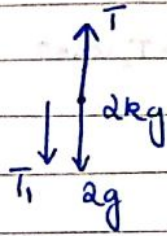 T
2kg
T₁
2g